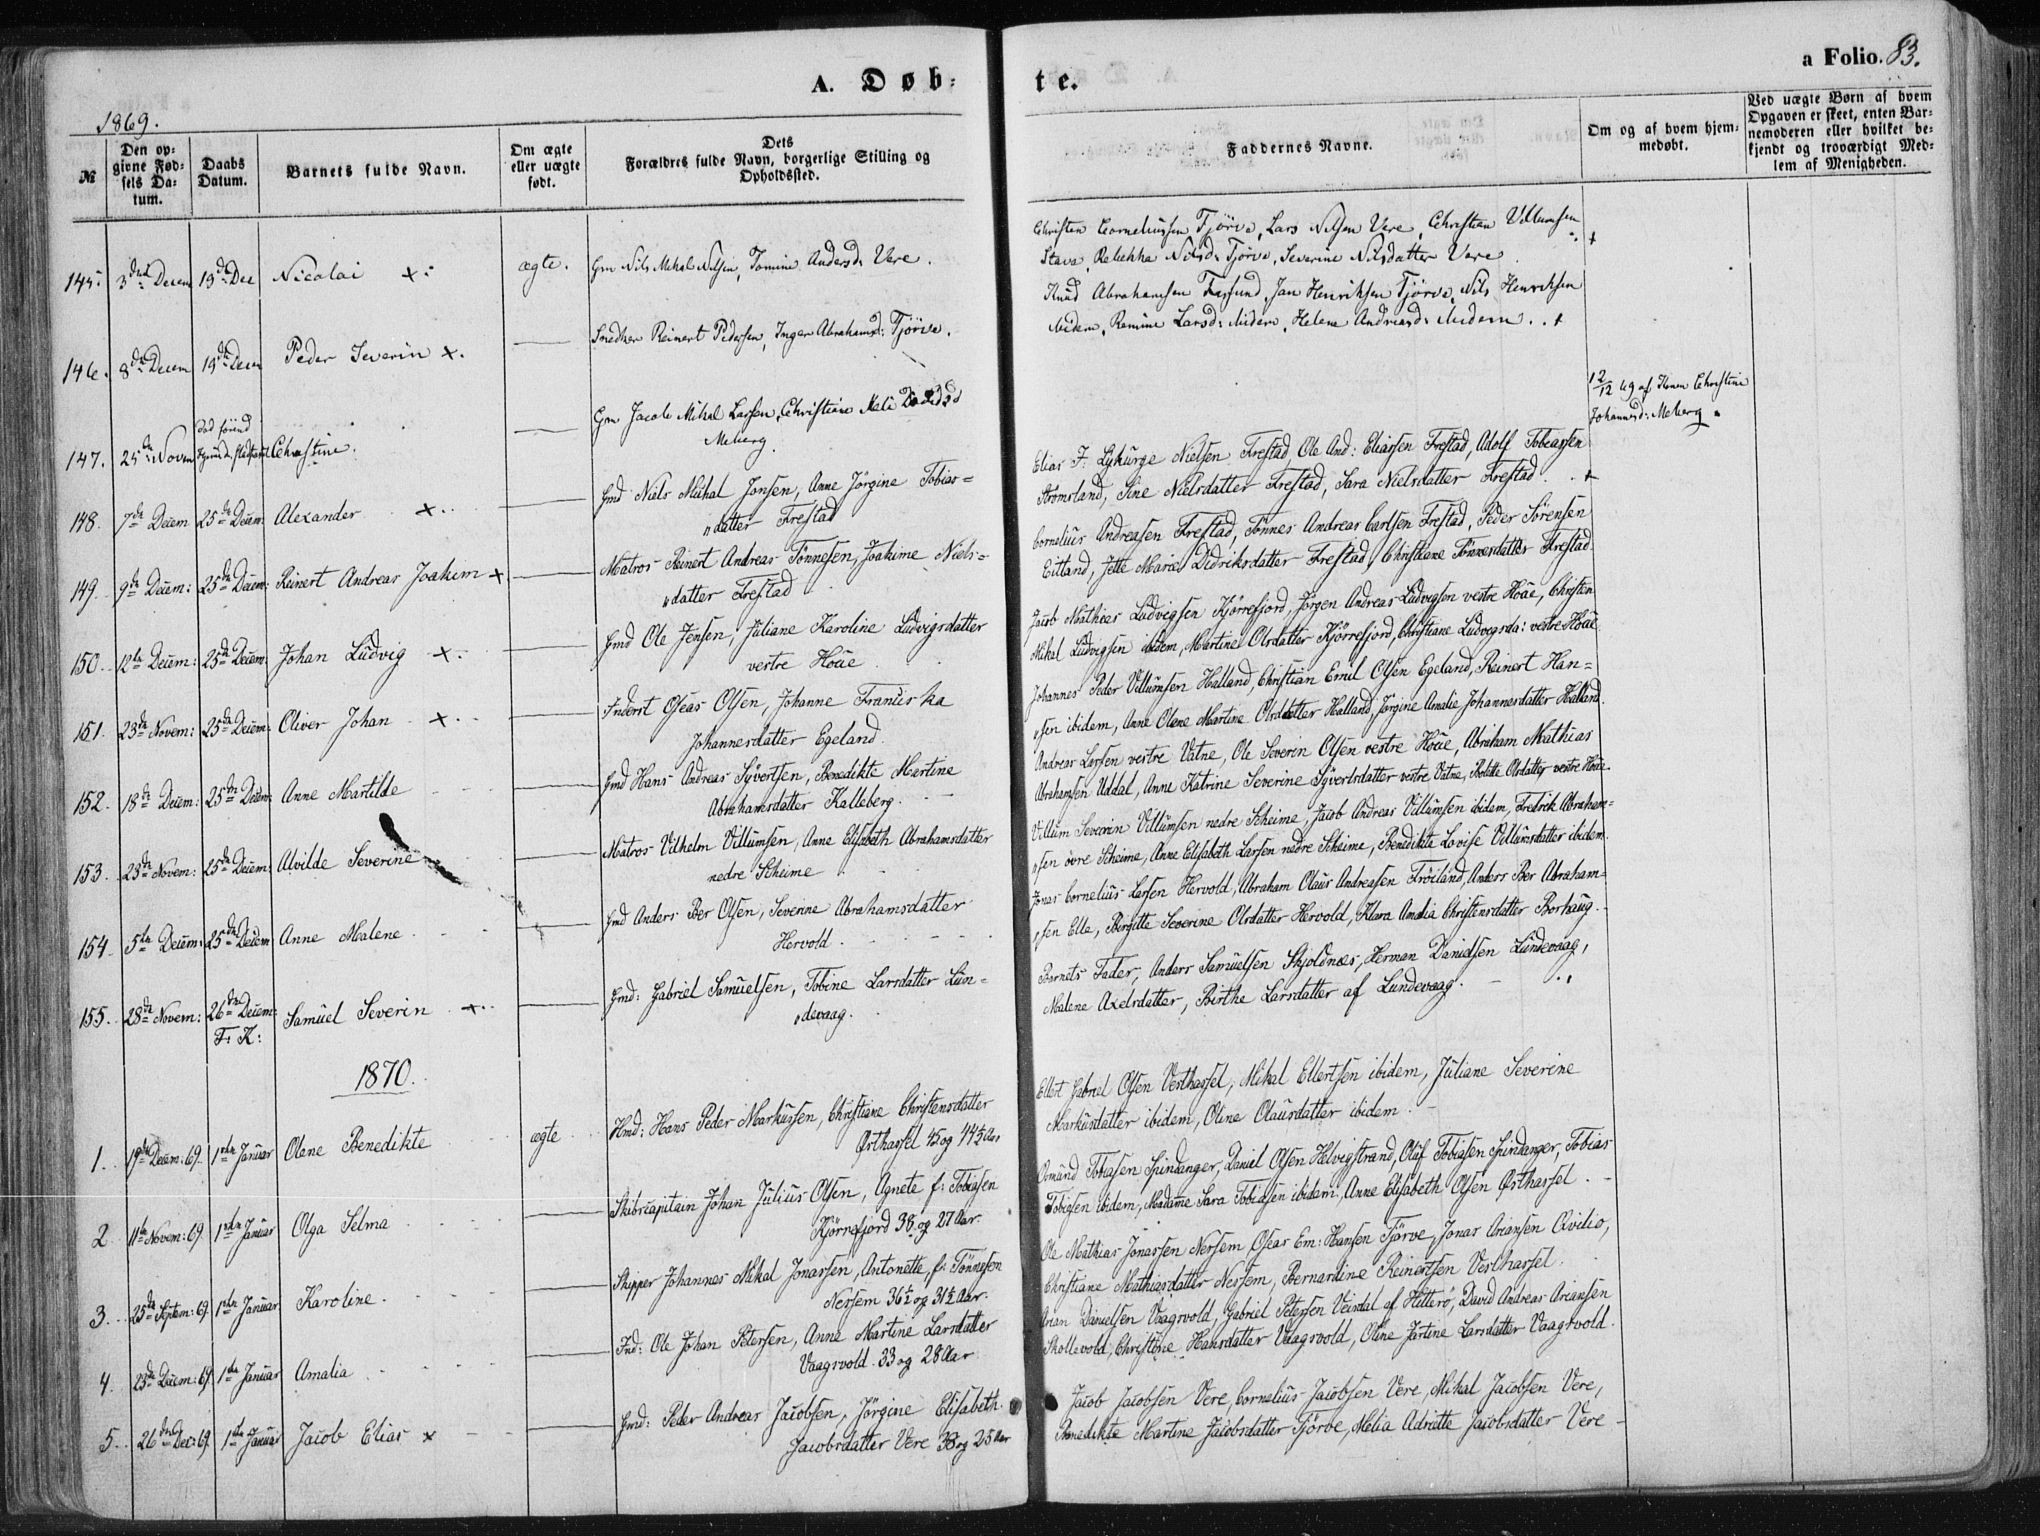 A. Døb-
te.
a Folio. 83.
1869.
№
Den opgivne Fødsels Datum.
Daabs Datum.
Barnets fulde Navn.
Om ægte eller uægte født.
Dets Forældres fulde Navn, borgerlige Stilling og Opholdssted.
Faddernes Navne.
Om og af hvem hjemmedøbt.
Ved uægte Børn af hvem Opgaven er skeet, enten Barnemoderen eller hvilket bekjendt og troværdigt Medlem af Menigheden.
145. 3die Decem 19de Dec Nicolai ægte. Gm Nils Mikal Nilsen, Tomine Andersd: Vere.
Christen Corneliussen Tjörve, Lars Nilsen Vere, Christian Villumsen
Stava, Rebekka Nilsd: Tjörve, Severine Nilsdatter Vere.
146. 8de Decem 19de Decem Peder Severin Snedker Reinert Pedersen, Inger Abrahamsd: Tjörve.
Knud Abrahamsen Farsund, Jan Henriksen Tjörve, Nils Henriksen
ibidem, Ramine Larsd: ibidem, Helene Andreasd: ibidem.
147. 25de Novem Christine. Gm Jacob Mikal Larsen, Christiane
Meberg
12/12 69 af Christine
Johannesd: Meberg
148. 7de Decem 25de Decem: Alexander Gmd Niels Mikal Jonsen, Anne Jörgine Tobias=
datter Frestad
Elias F. Lykurge Nielsen Frestad, Ole And: Eliassen Frestad, Adolf Tobiassen
Strömsland, Sine Nielsdatter Frestad, Sara Nielsdatter Frestad.
149. 9de Decem: 25de Decem: Reinert Andreas Joakim Matros Reinert Andreas Tönnesen, Joakime Niels=
datter Frestad
Cornelius Andreasen Frestad, Tönnes Andreas Carlsen Frestad, Peder Sörensen
Eitland, Jette Marie Didriksdatter Frestad, Christiane Tönnesdatter Frestad
150. 12te Decem: 25de Decem: Johan Ludvig Gmd Ole Jensen, Juliane Karoline Ludvigsdatter
vestre Höue
Jacob Mathias Ludvigsen Kjörrefjord, Jörgen Andreas Ludvigsen vestre Höue, Christen
Mikal Ludvigsen ibidem, Martine Olsdatter Kjörrefjord, Christiane Ludvigsda: vestre Höue
151. 23de Novem: 25de Decem: Oliver Johan Inderst Oseas Olsen, Johanne Franciska
Johannesdatter Egeland.
Johannes Peder Villumsen Halland, Christian Emil Olsen Egeland, Reinert Han=
sen ibidem, Anne Olene Martine Olsdatter Halland, Jörgine Amalie Johannesdatter Halland.
152. 18de Decem: 25de Decem: Anne Martilde Gmd Hans Andreas Syvertsen, Benedikte Martine
Abrahamsdatter Kalleberg.
Andreas Larsen vestre Vatne, Ole Severin Olsen vestre Höue, Abraham Mathias
Abrahamsen Uddal, Anne Katrine Severine Syvertsdatter vestre Vatne, Olsdatter vestre Höue.
153. 23de Novem: 25de Decem: Alvilde Severine Matros Vilhelm Villumsen, Anne Elisabeth Abrahamsdatter
nedre Skeime
Villum Severin Villumsen nedre Skeime, Jacob Andreas Villumsen ibidem, Fredrik Abraham=
sen övre Skeime, Anne Elisabeth Larsen nedre Skeime, Benedikte Lovise Villumsdatter ibidem.
154. 5te Decem: 25de Decem Anne Malene Gmd Anders Ber Olsen, Severine Abrahamsdatter
Hervold.
Jonas Cornelius Larsen Hervold, Abraham Olaus Andreasen Fröiland, Anders Ber Abraham=
sen Elle, Birgitte Severine Olsdatter Hervold, Klara Amalia Christensdatter Borhaug.
155. 28de Novem: 26de Decem: F: K: Samuel Severin Gmd: Gabriel Samuelsen, Tobine Larsdatter Lun=
devaag.
Barnets Fader, Anders Samuelsen Skjoldnæs, Herman Danielsen Lundevaag,
Malene Axelsdatter, Birthe Larsdatter af Lundevaag.
1870.
1. 19de Decem: 69. 1ste Januar Olene Benedikte ægte Hmd: Hans Peder Markussen, Christiane Christensdatter
Østhassel 45 og 44½ Aar
Ellert Gabriel Olsen Vesthassel, Mikal Ellertsen ibidem, Juliane Severine
Markusdatter ibidem, Oline Olausdatter ibidem.
2. 11te Novem: 69 1ste Januar Olga Selma Skibscapitain Johan Julius Olsen, Agnete f: Tobiasen
Kjörrefjord 38 og 27 Aar.
Osmund Tobiasen Spindanger, Daniel Olsen Helvigstrand, Oluf Tobiasen Spindanger, Tobias
Tobiasen ibidem, Madame Sara Tobiasen ibidem, Anne Elisabeth Olsen Østhassel.
3. 25de Septem: 69 1ste Januar Karoline Skipper Johannes Mikal Jonassen, Antonette f: Tönnesen
Nersem 36½ og 31½ Aar.
Ole Mathias Jonassen Nersem Oseas Em: Hansen Tjörve, Jonas Ariansen Qvilio,
Christiane Mathiasdatter Nersem, Bernardine Reinertsen Vesthassel.
4. 23de Decem: 69 1ste Januar Amalia Ind: Ole Johan Petersen, Anne Martine Larsdatter
Vaagsvold. 33 og 28 Aar
Arian Danielsen Vaagsvold, Gabriel Petersen Veisdal af Hitterö, David Andreas Ariansen
Skollevold, Christine Hansdatter Vaagsvold, Oline Jartine Larsdatter Vaagsvold.
5. 26de Dec: 69 1ste Januar Jacob Elias Gmd: Peder Andreas Jacobsen, Jörgine Elisabeth
Jacobsdatter Vere 38 og 25 Aar
Jacob Jacobsen Vere, Cornelius Jacobsen Vere, Mikal Jacobsen Vere,
Benedikte Martine Jacobsdatter Tjörve, Melia Adriette Jacobsdatter Vere